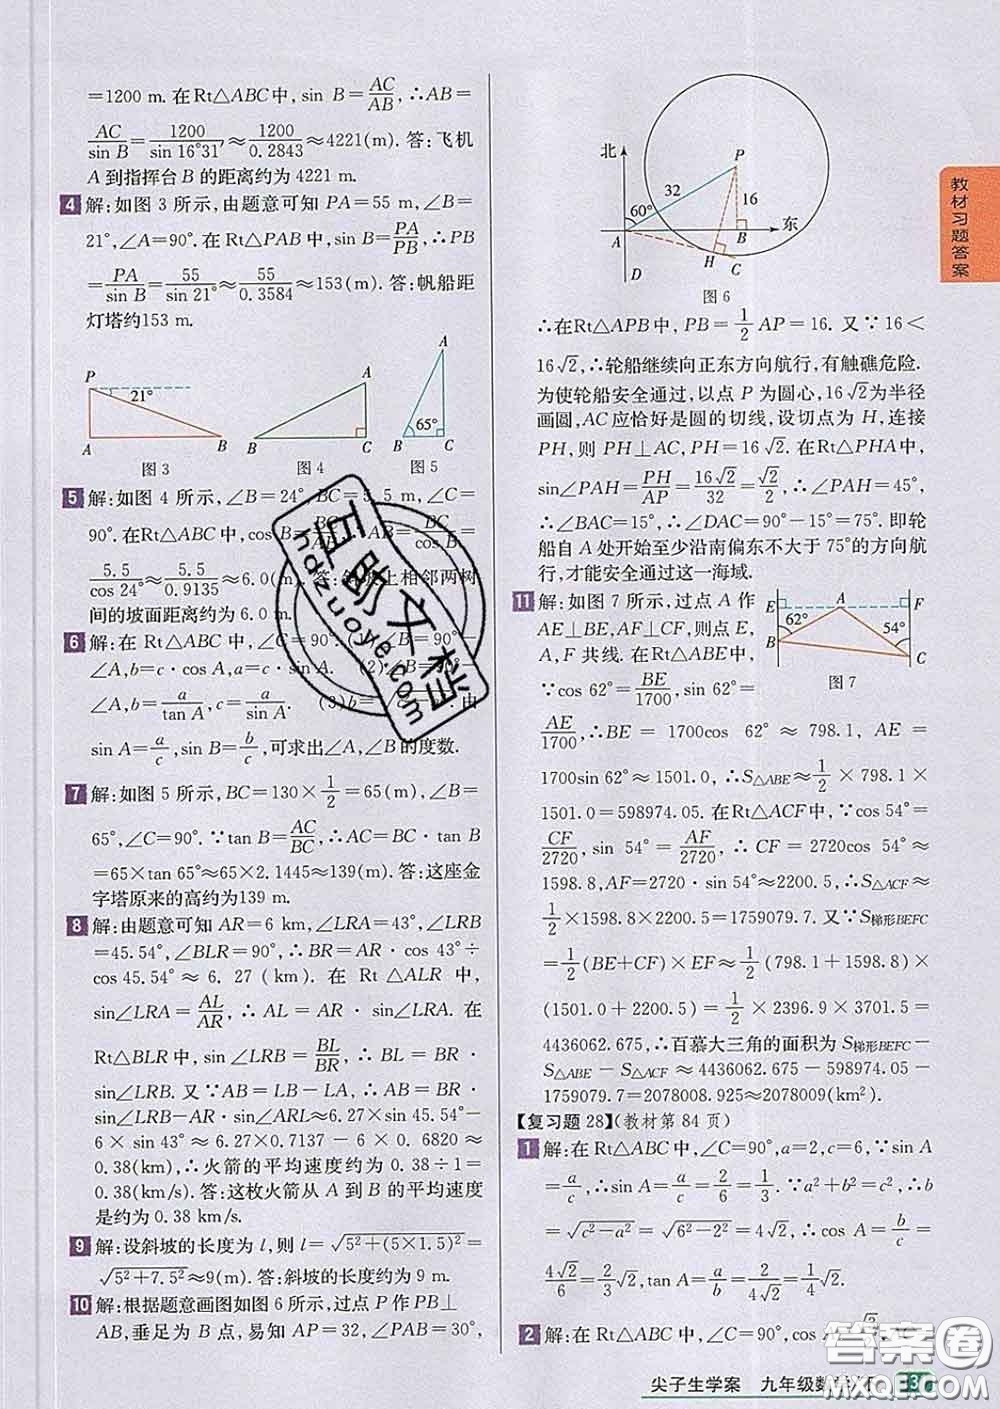 =1200 m. 在Rt△ABC中, sin B=AC/AB, ∴AB=
AC/sin B=1200/sin 16°31′≈1200/0.2843≈4221(m). 答:飞机
A 到指挥台 B 的距离约为 4221 m.
4 解:如图 3 所示,由题意可知 PA=55 m,∠B=
21°,∠A=90°. 在Rt△PAB 中,sin B=PA/PB,∴PB
=PA/sin B=55/sin 21°≈55/0.3584≈153(m). 答:帆船距
灯塔约153 m.
P 21° A B
图 3
A B C
图 4
A 65° B C
图 5
5 解:如图 4 所示,∠B=24°,BC=5.5 m,∠C=
90°. 在Rt△ABC 中,cos B=BC/AB,∴AB=BC/cos B=
5.5/cos 24°≈5.5/0.9135≈6.0(m). 答:斜坡上相邻两树
间的坡面距离约为 6.0 m.
6 解:(1)在 Rt△ABC 中,∠C=90°. ∠B=90°-
∠A,b=c·cos A,a=c·sin A. (2)∠B=90°-
∠A,b=a/tan A,c=a/sin A. (3)b= 由
sin A=a/c,sin B=b/c,可求出∠A,∠B的度数.
7 解:如图 5 所示,BC=130×1/2=65(m),∠B=
65°,∠C=90°. ∵tan B=AC/BC,∴AC=BC·tan B
=65×tan 65°≈65×2.1445≈139(m). 答:这座金
字塔原来的高约为139 m.
8 解:由题意可知 AR=6 km,∠LRA=43°,∠LRB
=45.54°,∠BLR=90°,∴BR=AR·cos 43°÷
cos 45.54°≈6.27(km). 在 Rt△ALR 中,
sin∠LRA=AL/AR,∴AL=AR·sin∠LRA. 在
Rt△BLR中,sin∠LRB=BL/BR,∴BL=BR·
sin∠LRB. 又∵AB=LB-LA,∴AB=BR·
sin∠LRB-AR·sin∠ALR≈6.27×sin 45.54°-
6×sin 43°≈6.27×0.7137-6×0.6820≈
0.38(km),∴火箭的平均速度约为 0.38÷1=
0.38(km/s). 答:这枚火箭从 A 到 B 的平均速度
是约为 0.38 km/s.
9 解:设斜坡的长度为 l,则 l=√(5²+(5×1.5)²)=
√(5²+7.5²)≈9(m). 答:斜坡的长度约为 9 m.
10 解:根据题意画图如图 6 所示,过点 P 作PB⊥
AB,垂足为 B 点,易知 AP=32,∠PAB=30°,
北 P 32 16 60° A B 东 H C D
图 6
∴在Rt△APB中,PB=1/2 AP=16. 又∵16<
16√2,∴轮船继续向正东方向航行,有触礁危险.
为使轮船安全通过,以点 P 为圆心,16√2为半径
画圆,AC应恰好是圆的切线,设切点为 H,连接
PH,则 PH⊥AC,PH=16√2. 在Rt△PHA中,
sin∠PAH=PH/AP=16√2/32=√2/2,∴∠PAH=45°,
∴∠BAC=15°,∴∠DAC=90°-15°=75°. 即轮
船自 A 处开始至少沿南偏东不大于 75°的方向航
行,才能安全通过这一海域.
11 解:如图 7 所示,过点 A 作
AE⊥BE,AF⊥CF,则点 E,
A,F 共线. 在Rt△ABE中,
E A F 62° 54° B C
图 7
∵cos 62°=BE/1700,sin 62°=
AE/1700,∴BE=1700cos 62°≈798.1,AE=
1700sin 62°≈1501.0,∴S△ABE≈1/2×798.1×
1501.0=598974.05. 在Rt△ACF中,∵cos 54°=
CF/2720,sin 54°=AF/2720,∴CF=2720cos 54°≈
1598.8,AF=2720·sin 54°≈2200.5,∴S△ACF≈
1/2×1598.8×2200.5=1759079.7. 又∵S梯形BEFC
=1/2(BE+CF)×EF≈1/2(798.1+1598.8)×
(1501.0+2200.5)=1/2×2396.9×3701.5=
4436062.675,∴百慕大三角的面积为 S梯形BEFC-
S△ABE-S△ACF≈4436062.675-598974.05-
1759079.7=2078008.925≈2078009(km²).
【复习题 28】(教材第 84 页)
1 解:在Rt△ABC中,∠C=90°,a=2,c=6,∵sin A
=a/c,∴sin A=a/c=2/6=1/3. ∵a²+b²=c²,∴b
=√(c²-a²)=√(6²-2²)=4√2,∴cos A=b/c=
4√2/6=2/3√2,tan A=a/b=2/4√2=1/4√2.
2 解:在 Rt△ABC 中,∠C=90°,cos
教材习题答案
尖子生学案 九年级数学
直助文档
hdzuoye.com
答案圈
MXQE.COM